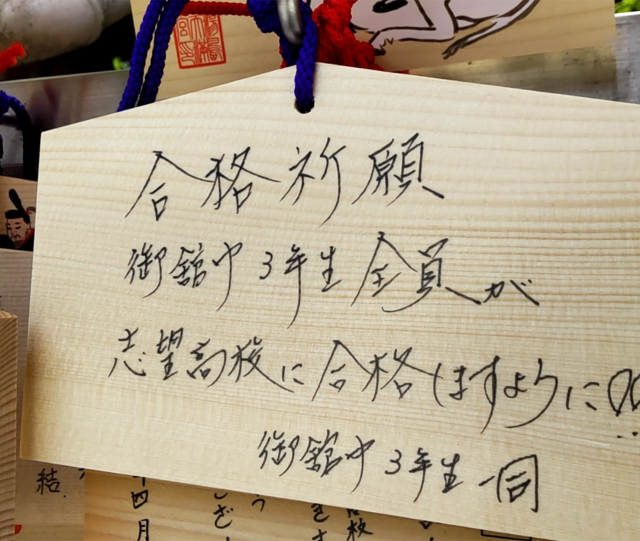 合格祈願
御舘中3年生全員が
志望高校に合格しますように!!
御舘中3年生一同
結
十四月